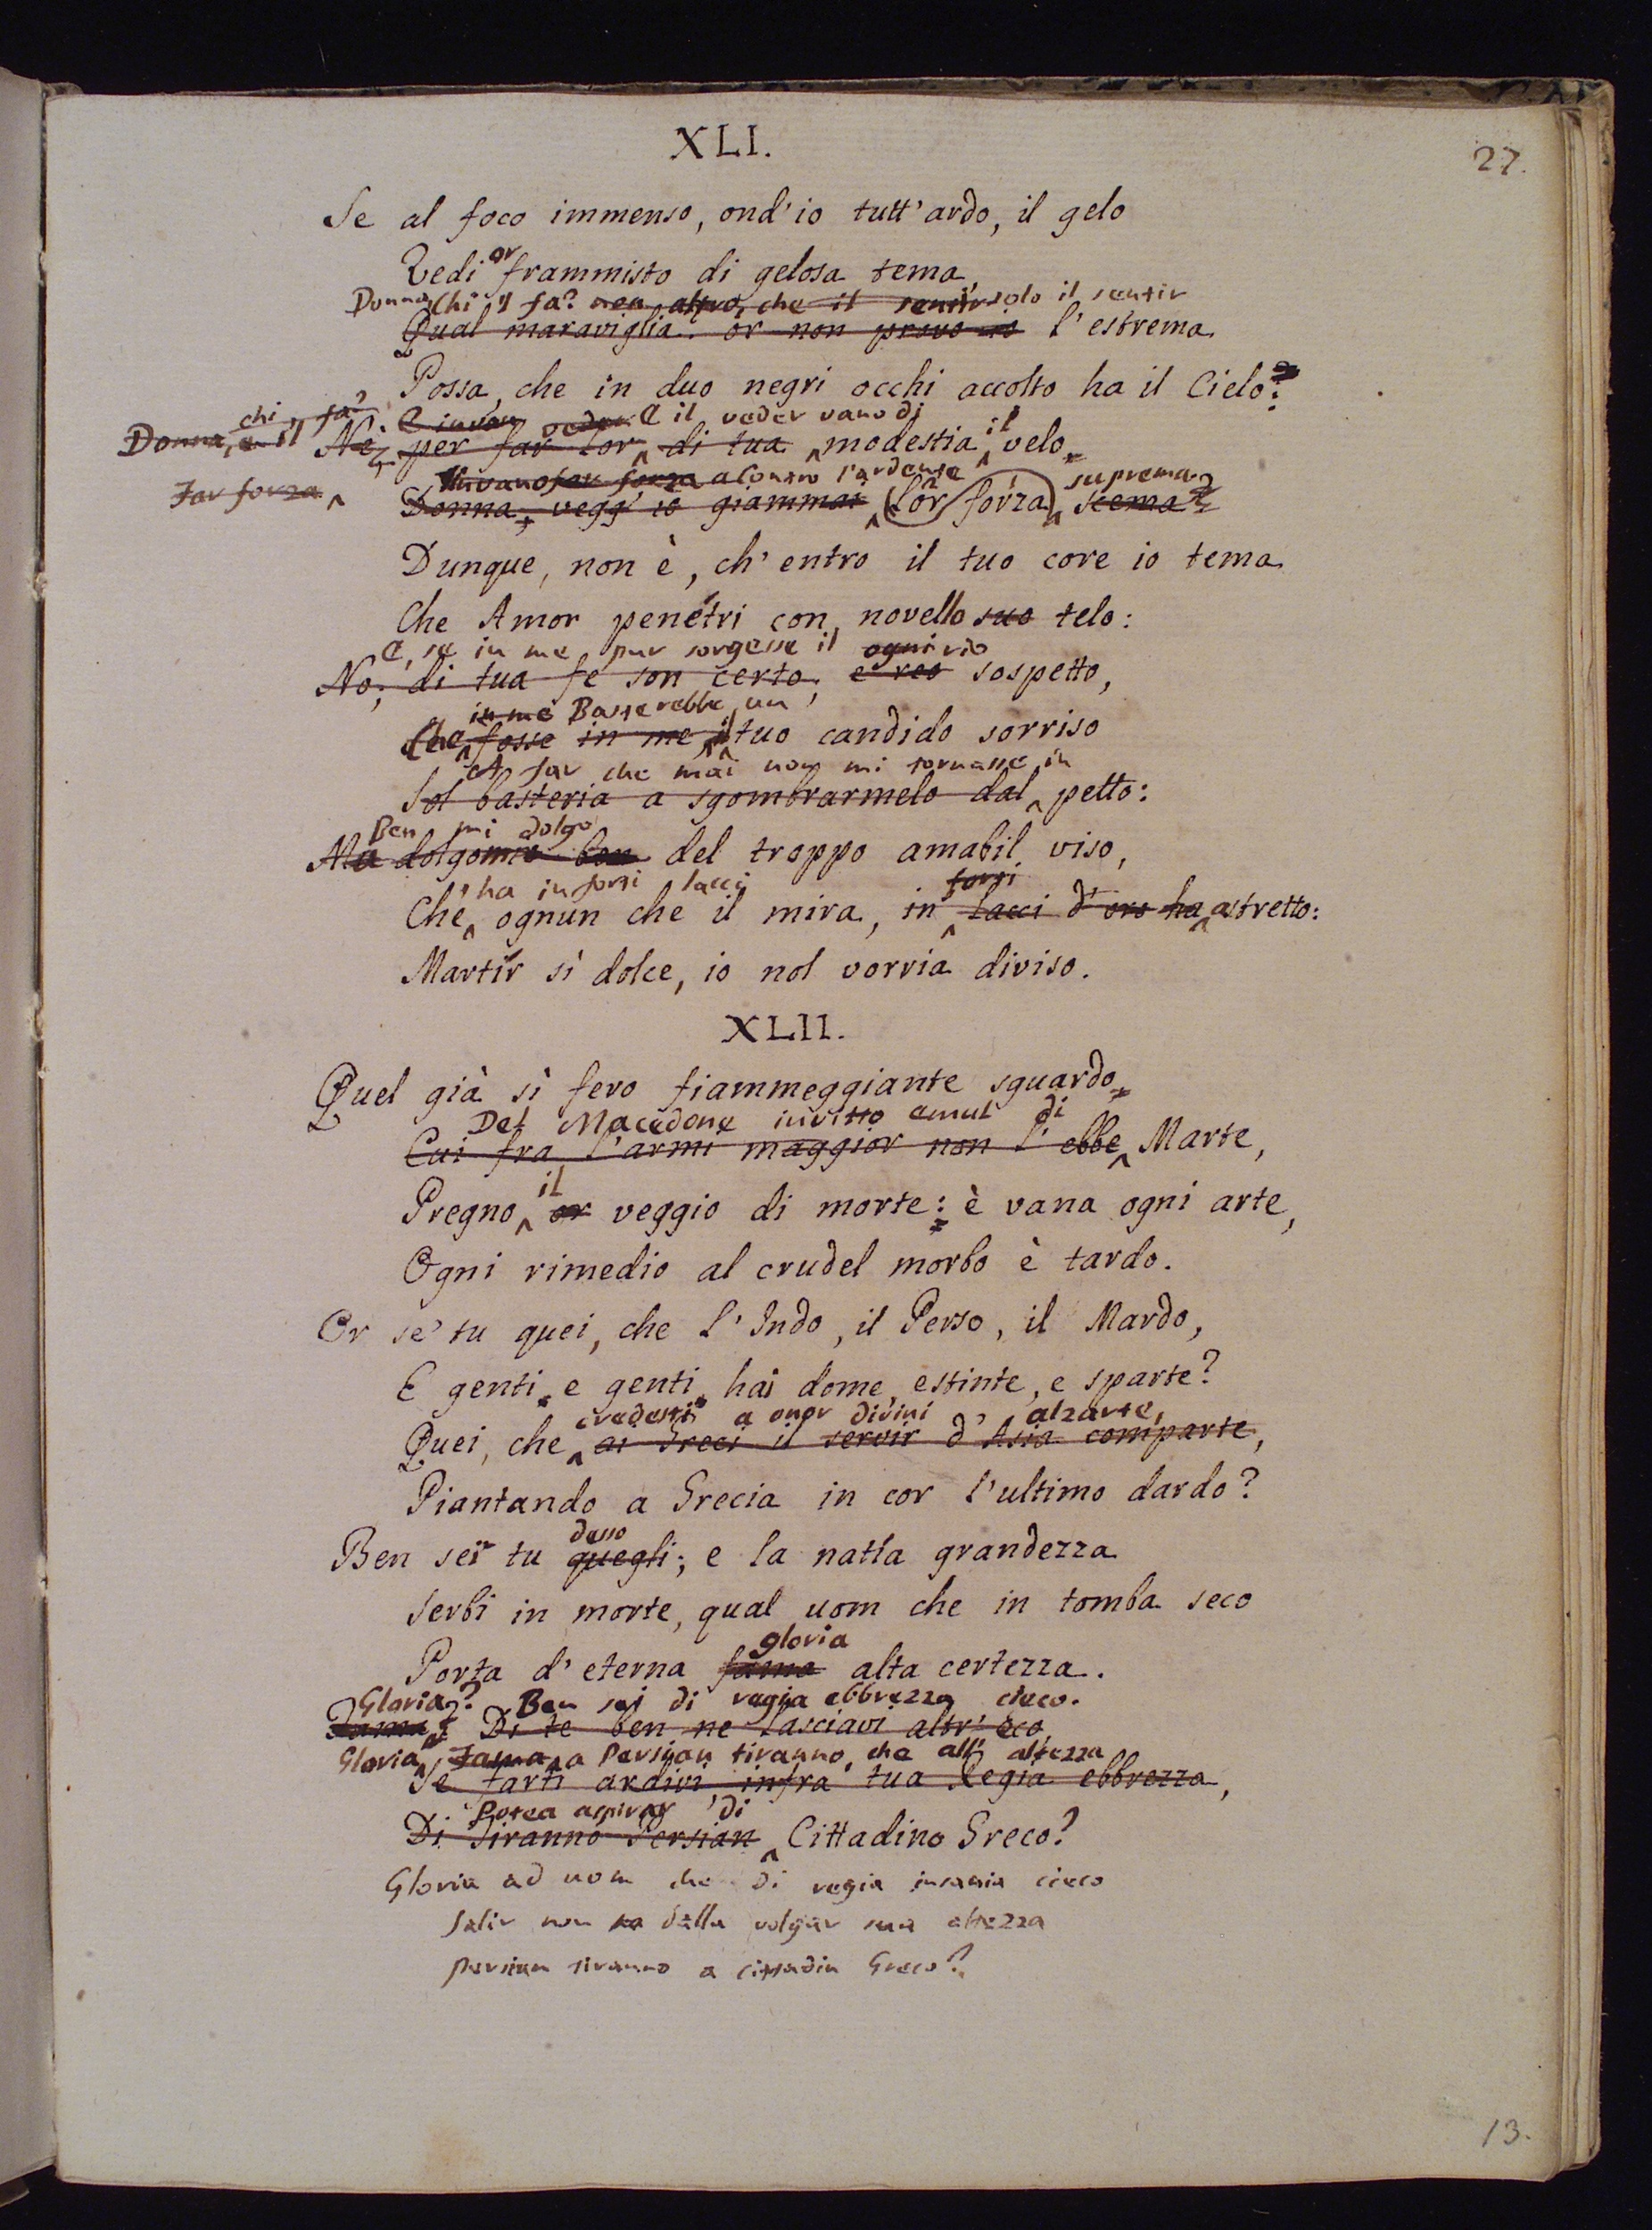 XLI.
27.
Se al foco immenso, ond'io tutt'ardo, il gelo
Vedi or frammisto di gelosa tema,
Donna, Chi 'l fa? non altro, che il sentir solo il sentir
Qual maraviglia: or non provo io l'estrema
Possa, che in duo negri occhi accolto ha il Cielo?
chi 'l fa? E invan veder E il veder vano di il
Donna, Nè per far lor di tua modestia velo
a contro l'ardente suprema?
Far forza Donna, vegg'io giammai lor forza scema?
Dunque, non è, ch'entro il tuo core io tema
Che Amor penétri con novello suo telo:
E, se in me pur sorgesse il ogni rio
No; di tua fe son certo; e reo sospetto,
in me Basterebbe un
Che fosse in me, il tuo candido sorriso
A far che mai non mi tornasse in
Sol basteria a sgombrarmelo dal petto:
Ben mi dolgo
Ma dolgomi ben del troppo amabil viso,
ha in forti lacci forti
Che ognun che il mira, in lacci d'oro ha astretto:
Martír sì dolce, io nol vorria diviso.
XLII.
Quel già sì fero fiammeggiante sguardo
Del Macedone invitto emul di
Cui fra l'armi maggior non l'ebbe Marte,
il
Pregno or veggio di morte: è vana ogni arte,
Ogni rimedio al crudel morbo è tardo.
Or se' tu quei, che l'Indo, il Perso, il Mardo,
E genti e genti hai dome, estinte, e sparte?
credesti a onor divini alzarte,
Quei, che ai Greci il servir d'Asia comparte,
Piantando a Grecia in cor l'ultimo dardo?
desso
Ben sei tu quegli; e la natía grandezza
Serbi in morte, qual uom che in tomba seco
gloria
Porta d'eterna fama alta certezza.
Gloria? Ben sei di regia ebbrezza cieco.
Fama? Di te ben ne lasciavi altr'eco,
Gloria, Fama, a Persian tiranno, che all'altezza
Se farti ardivi, infra tua Regia ebbrezza,
Potea aspirar di
Di Tiranno Persian Cittadino Greco?
Gloria ad uom che di regia insania cieco
Salir non sa dalla volgar sua altezza
Persian tiranno a cittadin Greco?
13.